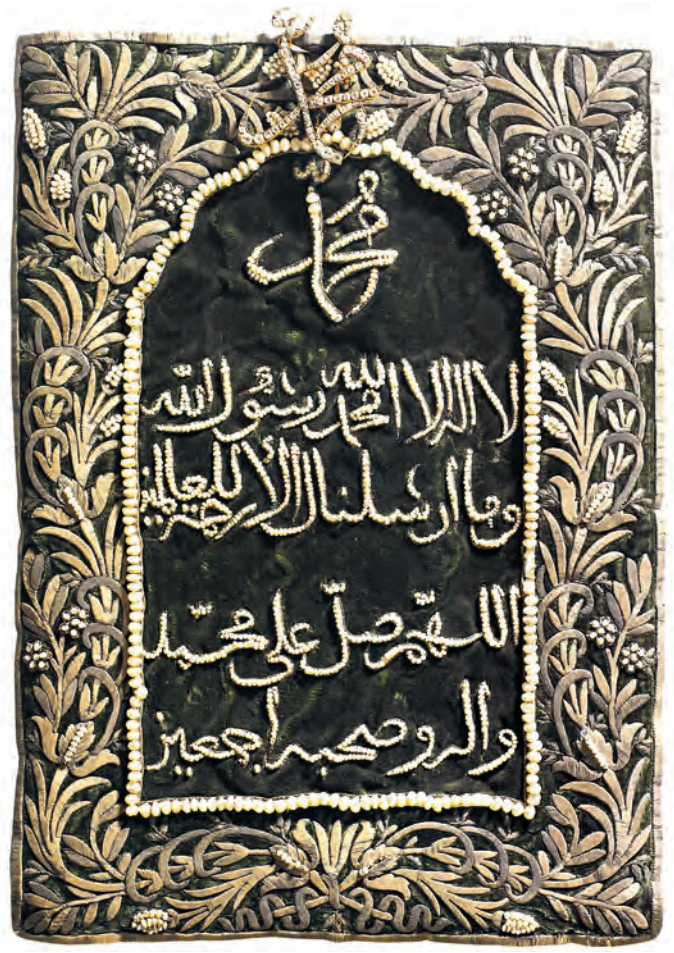 محمد
لا اله الا الله محمد رسول الله
وما ارسلناك إلا رحمة للعالمين
اللهم صلّ على محمد
واله وصحبه اجمعين